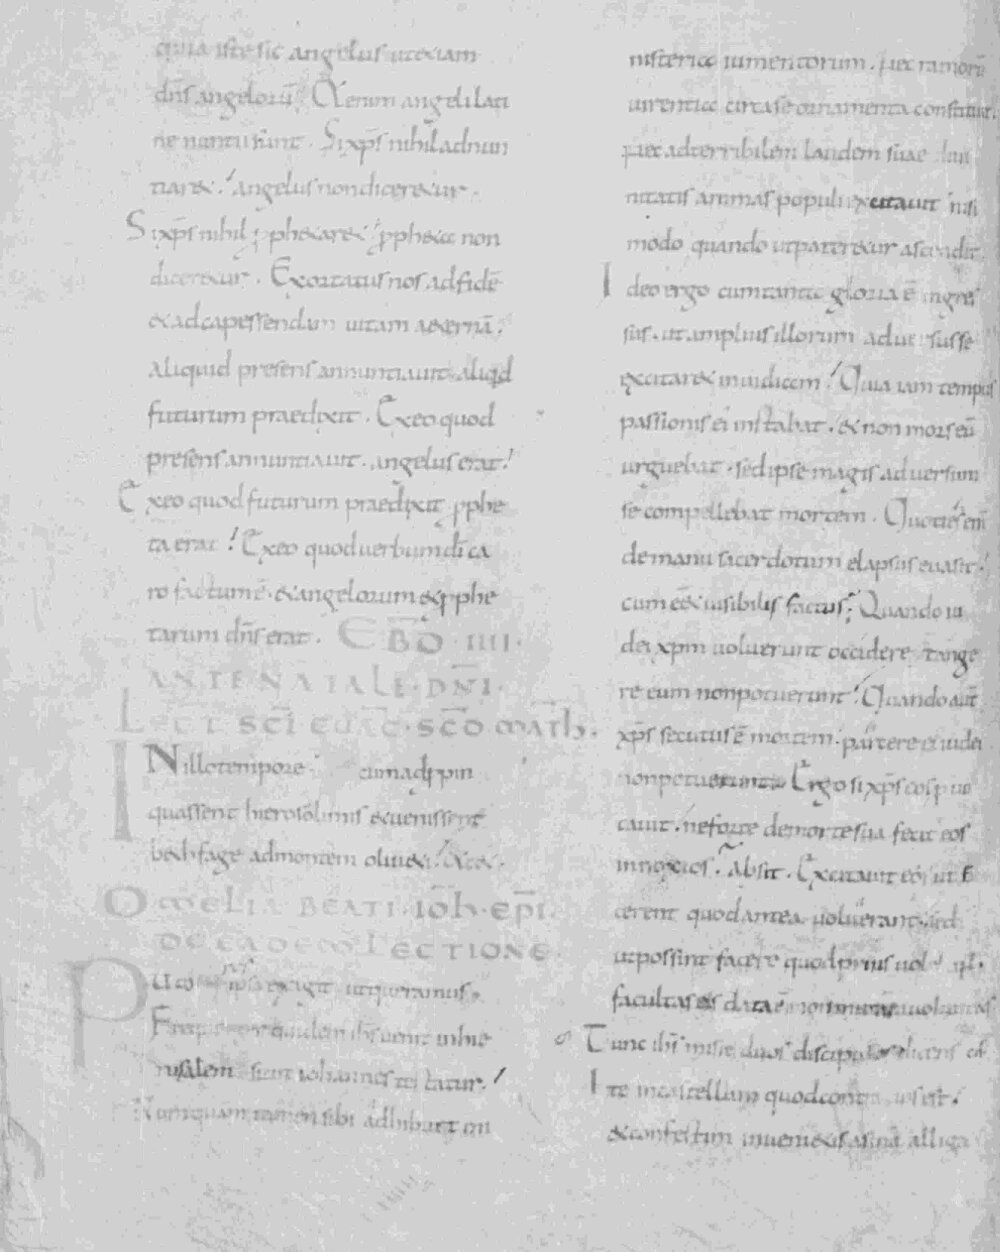 quia iste sic angelus ut etiam
dn̄s angeloꝝ. Etenim angeli lati
ne nuntii sunt. Si xp̄s nihil adnun
tiaret. angelus non diceretur.
Si xp̄s nihil ꝓphetaret ꝓpheta non
diceretur. Exortatus nos ad fidē
& ad capessendam uitam aeternā.
Aliquid presens annuntiauit. aliqd
futurum praedixit. Ex eo quod
presens annuntiauit. angelus erat.
Ex eo quod futurum praedixit ꝓphe
ta erat. Ex eo quod uerbum dī ca
ro factum ē. & angelorum & ꝓphe
tarum dn̄s erat. EBD̄ IIII.
ANTE NATALE DN̄I.
LECT SC̄I EUAḠ. SC̄O MATH̄.
IN illo tempore cum adppin
quassent hierosolimis & uenissent
bethfage ad montem oliueti. & ret.
OMELIA BEATI IOH̄ EPĪ.
DE EADEM LECTIONE.
Puto res ipsa exigit ut queramus.
Frequenter quidem ih̄s uenit in hie
rusalem sicut iohannes testatur.
Numquam tamen sibi adhibuit mi
nisteria iumentorum. nec ramorū
uirentia circa se ornamenta constituit.
nec ad terribilem laudem suae diui
nitatis animas populi excitauit nisi
modo quando ut pateretur ascendit.
Ideo ergo cum tanta gloria ē ingres
sus. ut amplius illorum aduersus se
excitaret inuidiam. Quia iam tempus
passionis ei instabat. & non mors eū
urguebat. sed ipse magis aduersum
se compellebat mortem. Quotiens eī
de manu sacerdotum elapsus euasit.
cum eēt inuisibilis factus. Quando iu
dei xpm uoluerunt occidere tange
re eum non potuerunt. Quando aūt
xp̄s secutus ē mortem. parcere ei iudei
non potuerunt. Ergo si xp̄s eos ꝓuo
cauit. ne forte de morte sua fecit eos
innoxios. Absit. Excitauit eos ut fa
cerent quod antea uoluerant. sed
ut possint facere quod prius uol
facultas eis data ē non
Tunc ih̄s misit duos discipulos dicens eis
Ite in castellum quod contra uos est.
& confestim inuenietis asinā alliga